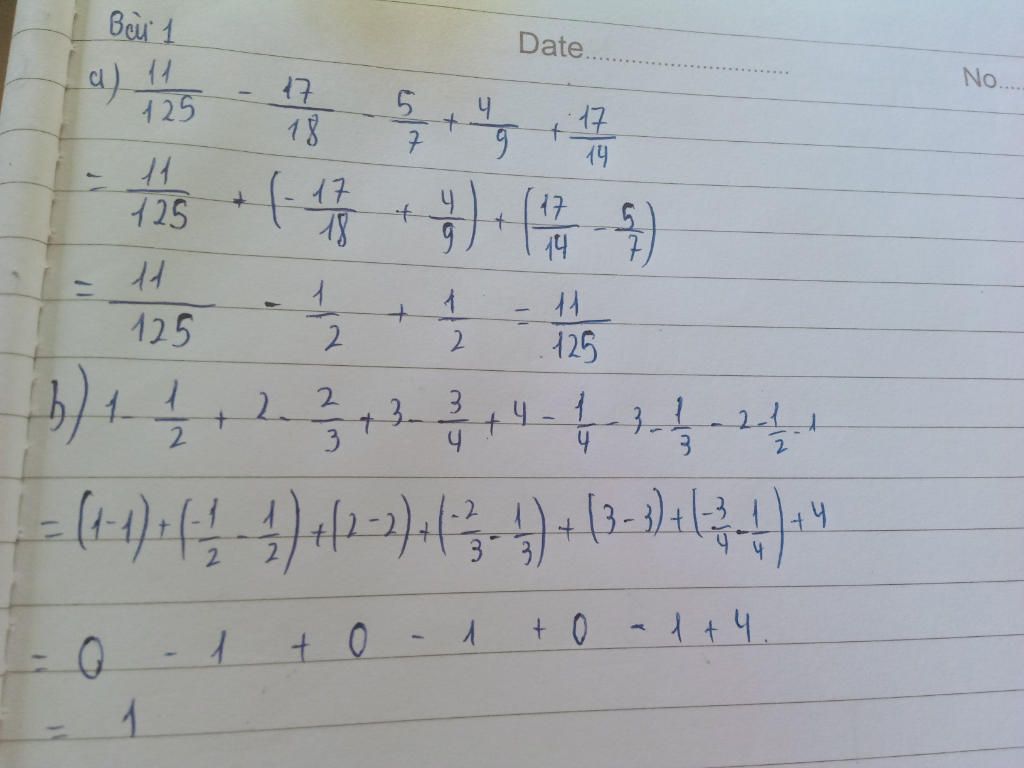 Bài 1
Date..............................
No.....
a) 11/125 - 17/18 - 5/7 + 4/9 + 17/14
= 11/125 + (-17/18 + 4/9) + (17/14 - 5/7)
= 11/125 - 1/2 + 1/2 = 11/125
b) 1 - 1/2 + 2 - 2/3 + 3 - 3/4 + 4 - 1/4 - 3 - 1/3 - 2 - 1/2 - 1
= (1-1) + (-1/2 - 1/2) + (2-2) + (-2/3 - 1/3) + (3-3) + (-3/4 - 1/4) + 4
= 0 - 1 + 0 - 1 + 0 - 1 + 4.
= 1